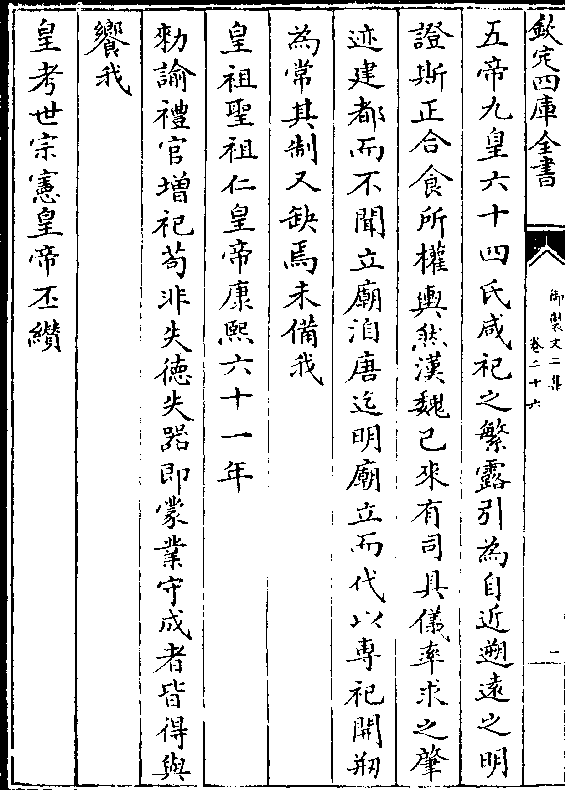 欽定四庫全書
御製文二集
卷二十六
一
五帝九皇六十四氏咸祀之繁露引為自近遡遠之明
證斯正合食所權輿然漢魏已來有司具儀率求之肇
迹建都而不聞立廟洎唐迄明廟立而代以專祀開剏
為常其制又缺焉未備我
皇祖聖祖仁皇帝康熙六十一年
勅諭禮官增祀苟非失徳失器即蒙業守成者皆得與
饗我
皇考世宗憲皇帝丕纉